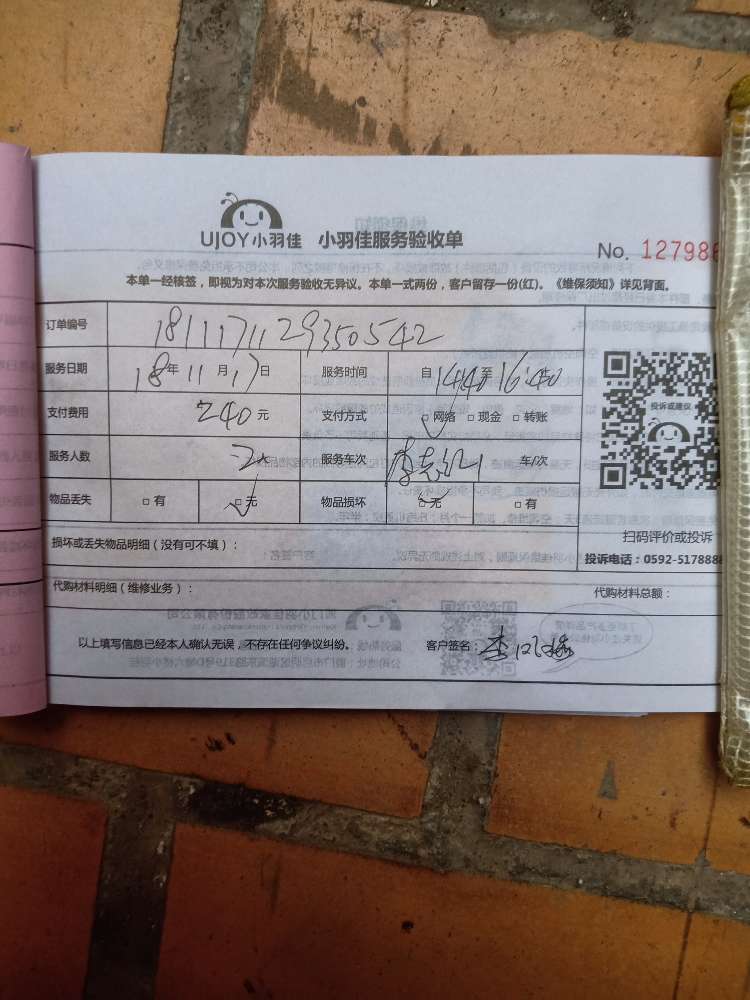 UJOY小羽佳 小羽佳服务验收单
No. 127986
本单一经核签，即视为对本次服务验收无异议。本单一式两份，客户留存一份(红)。《维保须知》详见背面。
订单编号 1811171129350542
服务日期 18年 11月 17日 服务时间 自 14:40 至 16:40
支付费用 240元 支付方式 □网络 □现金 □转账
投诉或建议
服务人数 二人 服务车次 车/次
物品丢失 □有 □无 物品损坏 □无 □有
扫码评价或投诉
损坏或丢失物品明细（没有可不填）：
投诉电话：0592-5178888
代购材料明细（维修业务）： 代购材料总额：
以上填写信息已经本人确认无误，不存在任何争议纠纷。 客户签名：